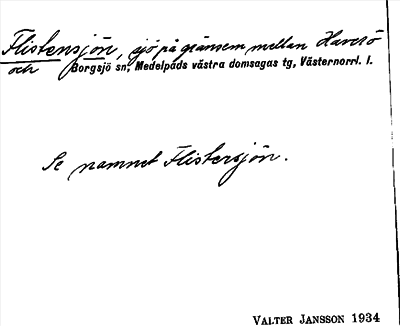 Flistensjön, sjö på gränsen mellan Haverö
och Borgsjö sn, Medelpads västra domsagas tg, Västernorrl. l.
Se namnet Flistersjön.
VALTER JANSSON 1934